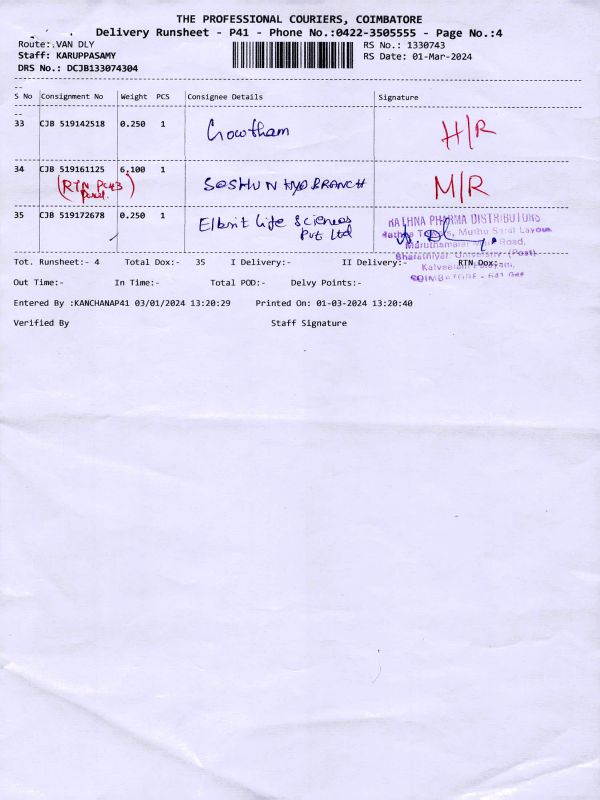 THE PROFESSIONAL COURIERS, COIMBATORE
Delivery Runsheet - P41 - Phone No.:0422-3505555 - Page No.:4
Route:.VAN DLY
RS No.: 1330743
Staff: KARUPPASAMY
RS Date: 01-Mar-2024
DRS No.: DCJB133074304
S No Consignment No Weight PCS Consignee Details Signature
33 CJB 519142518 0.250 1 Gowtham H/R
34 CJB 519161125 6.100 1 M/R
(RTN
35 CJB 519172678 0.250 1 Elbrit Life Sciences
Pvt Ltd
RATHNA PHARMA DISTRIBUTORS
Towers, Muthu Layout
Road,
Bharathiyar University (Post)
COIMBATORE - 641
Tot. Runsheet:- 4 Total Dox:- 35 I Delivery:- II Delivery:- RTN Dox:-
Out Time:- In Time:- Total POD:- Delvy Points:-
Entered By :KANCHANAP41 03/01/2024 13:20:29 Printed On: 01-03-2024 13:20:40
Verified By Staff Signature